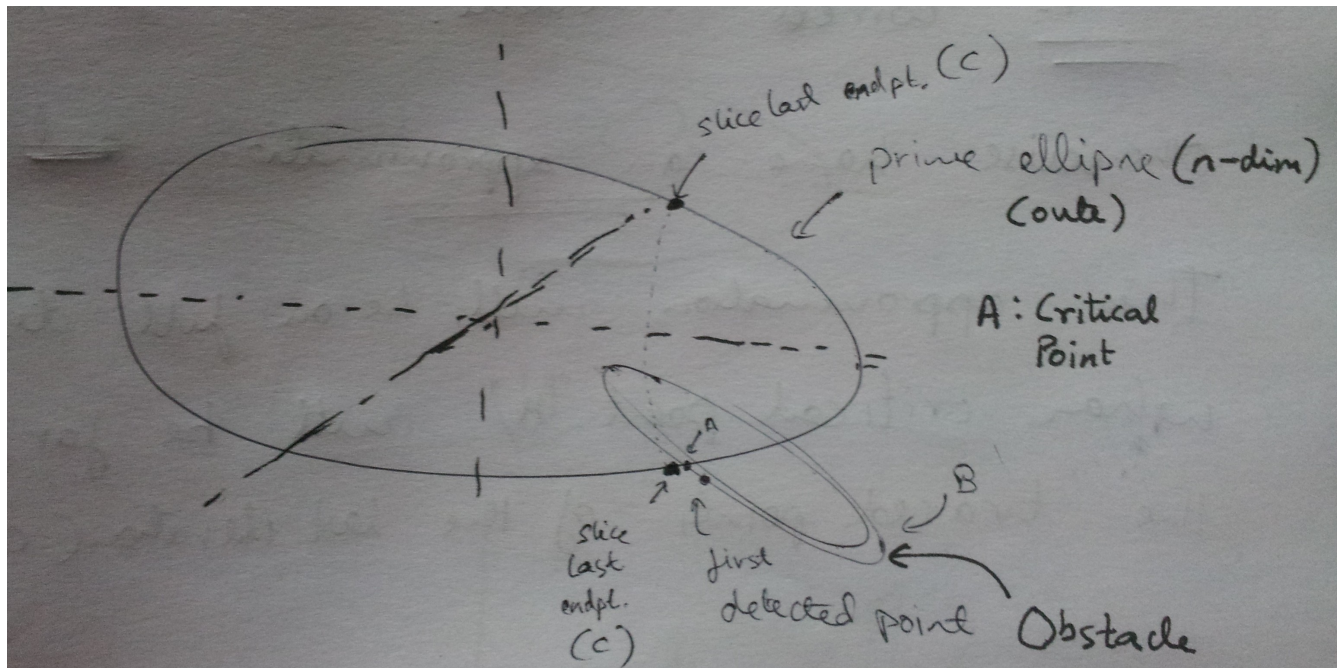 slice last endpt. (C)
prime ellipse (n-dim)
(oute)
A : Critical
Point
A
B
slice
last
endpt.
(C)
first
detected point
Obstacle